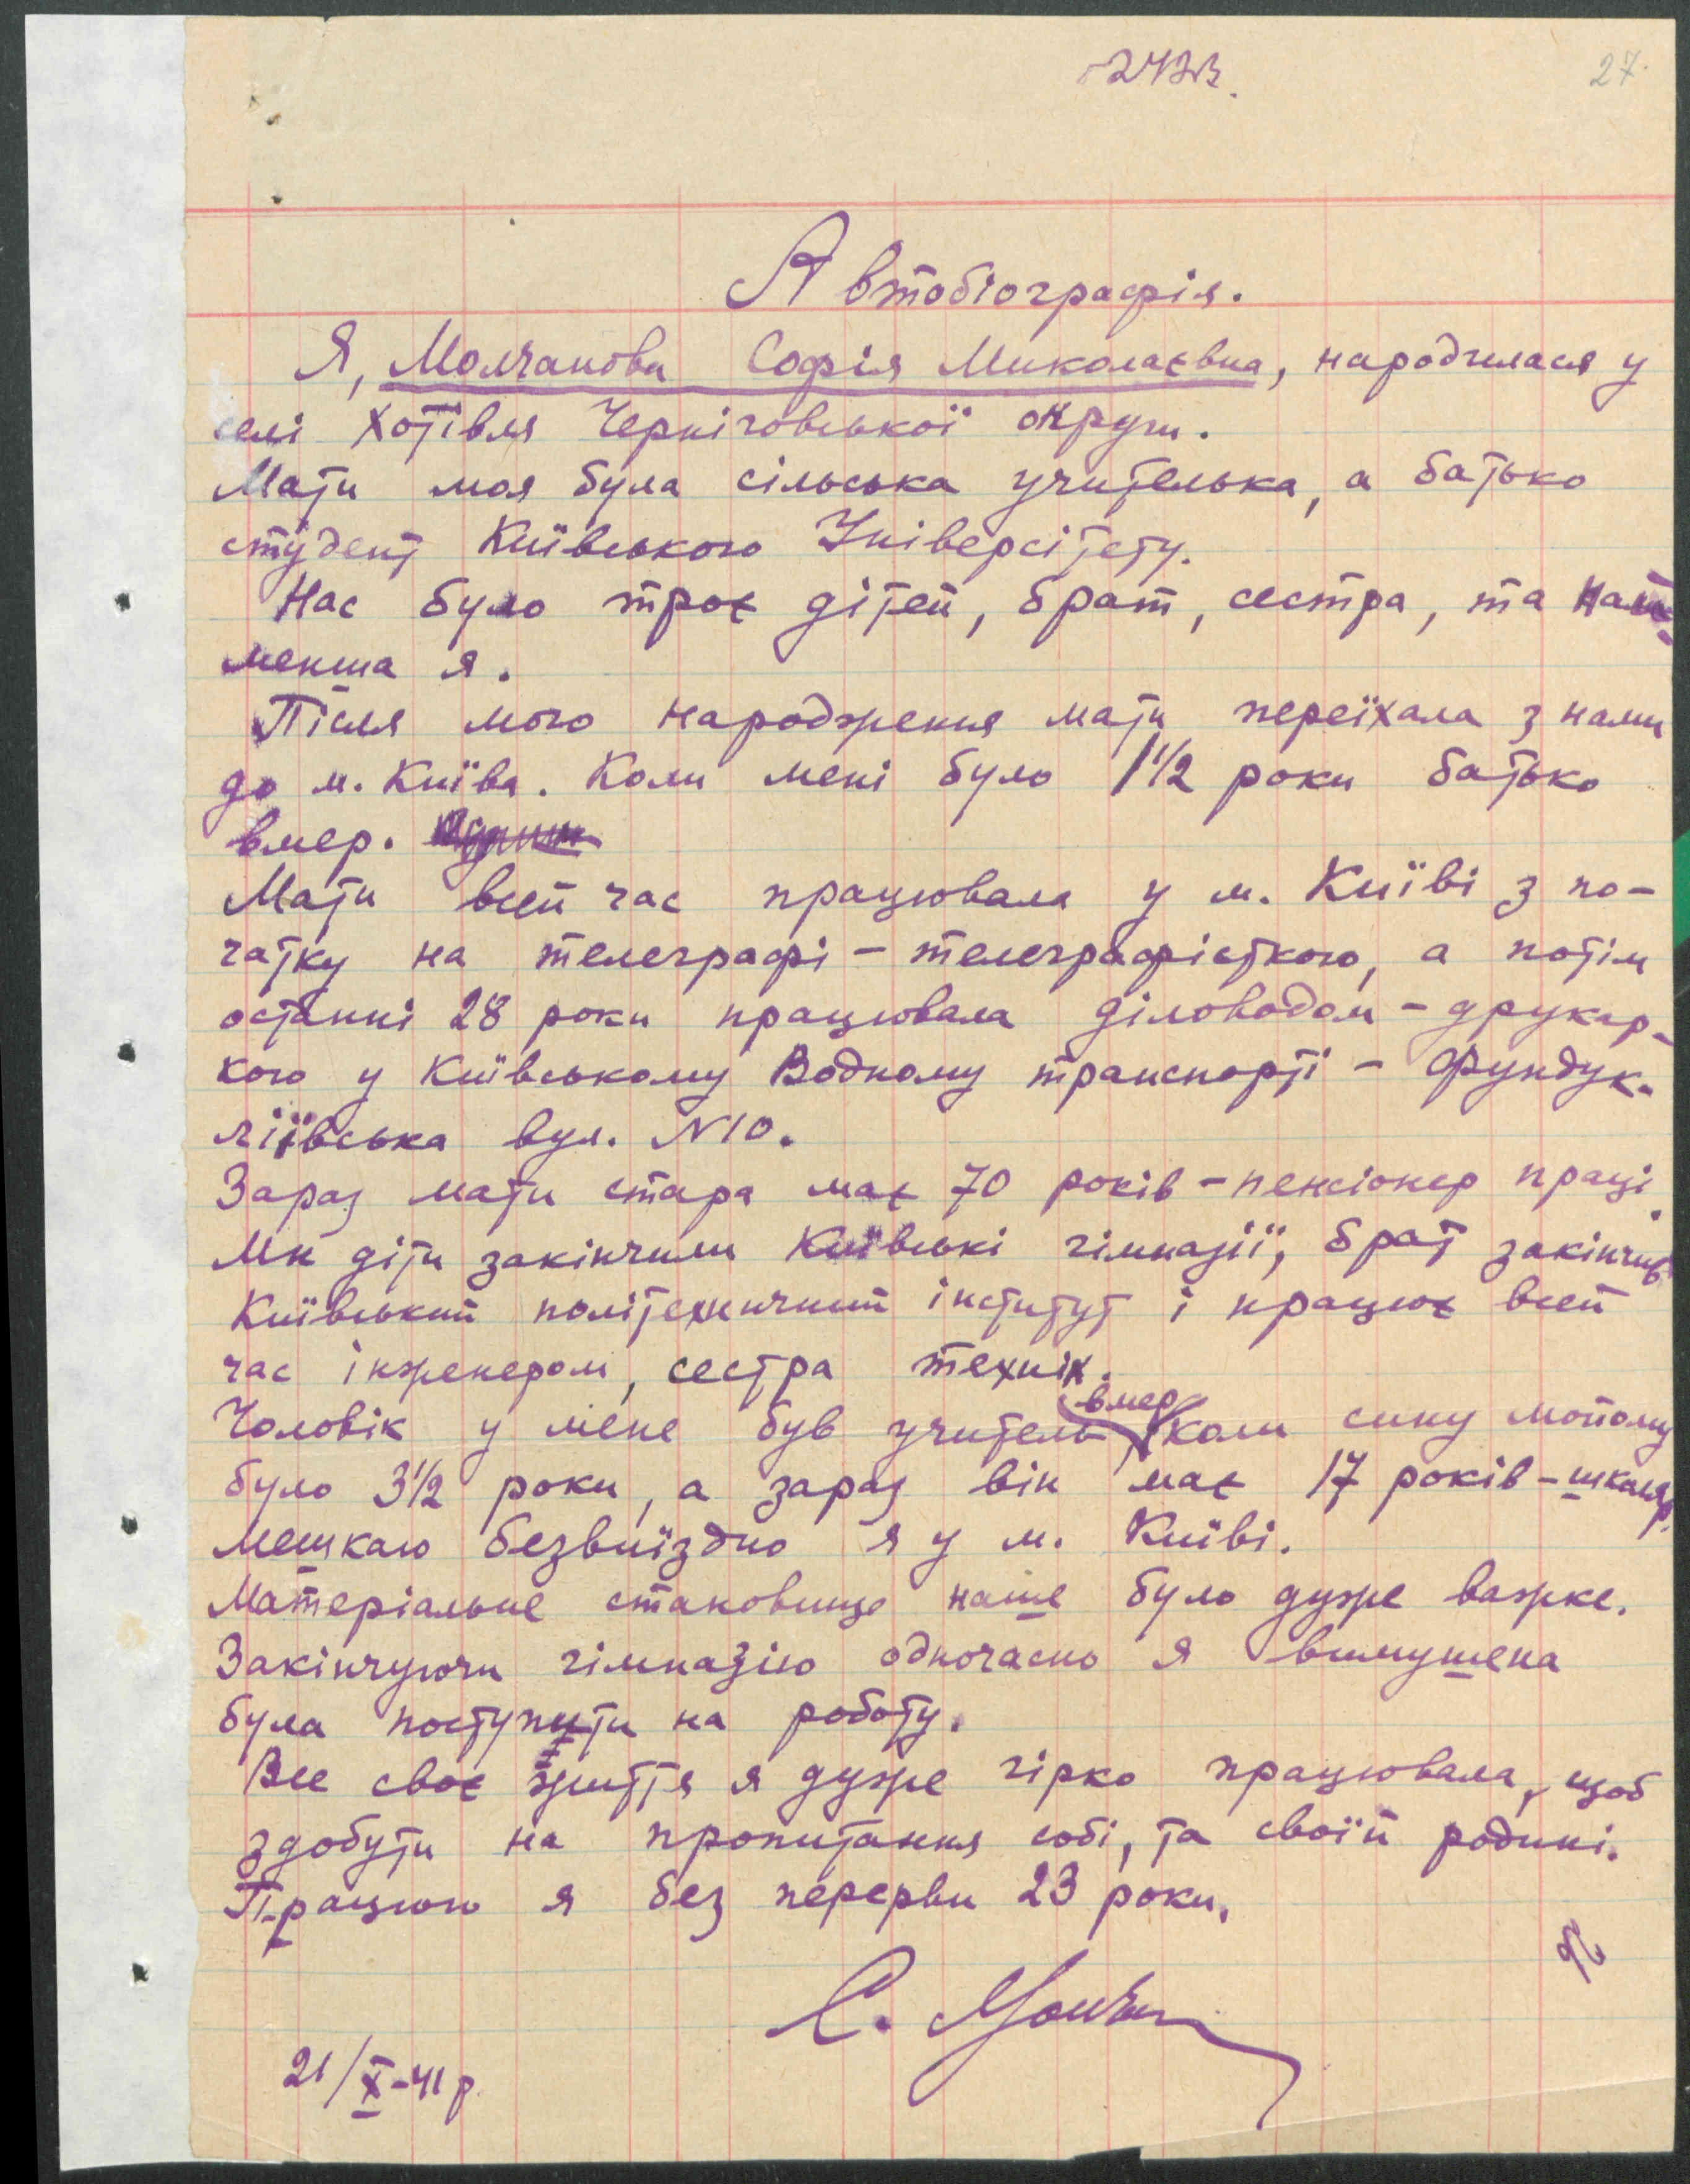 27.
Автобіографія.
Я, Молчанова Софія Миколаєвна, народилася у
селі Хотівля Чернігівської округи.
Мати моя була сільська учителька, а батько
студент Київського Університету.
Нас було троє дітей, брат, сестра, та най-
менша я.
Після мого народження мати переїхала з нами
до м. Київа. Коли мені було 1 1/2 роки батько
вмер.
Мати всей час працювала у м. Київі з по-
чатку на телеграфі - телеграфісткою, а потім
останні 28 роки працювала діловодом - друкар-
кою у Київському Водному транспорті - Фундук-
ліївська вул. N10.
Зараз мати стара має 70 років - пенсіонер праці.
Ми діти закінчили Київські гімназії, брат закінчив
Київський політехничний інститут і працює всей
час інженером, сестра технік.
Чоловік у мене був учитель, вмер коли сину мойому
було 3 1/2 роки, а зараз він має 17 років - школяр.
Мешкаю безвиїздно я у м. Київі.
Матеріальне становище наше було дуже важке.
Закінчуючи гімназію одночасно я вимушена
була поступити на роботу.
Все своє життя я дуже гірко працювала, щоб
здобути на пропитання собі, та своїй родині.
Працюю я без перерви 23 роки.
С. Молчан
21/X-41 р.